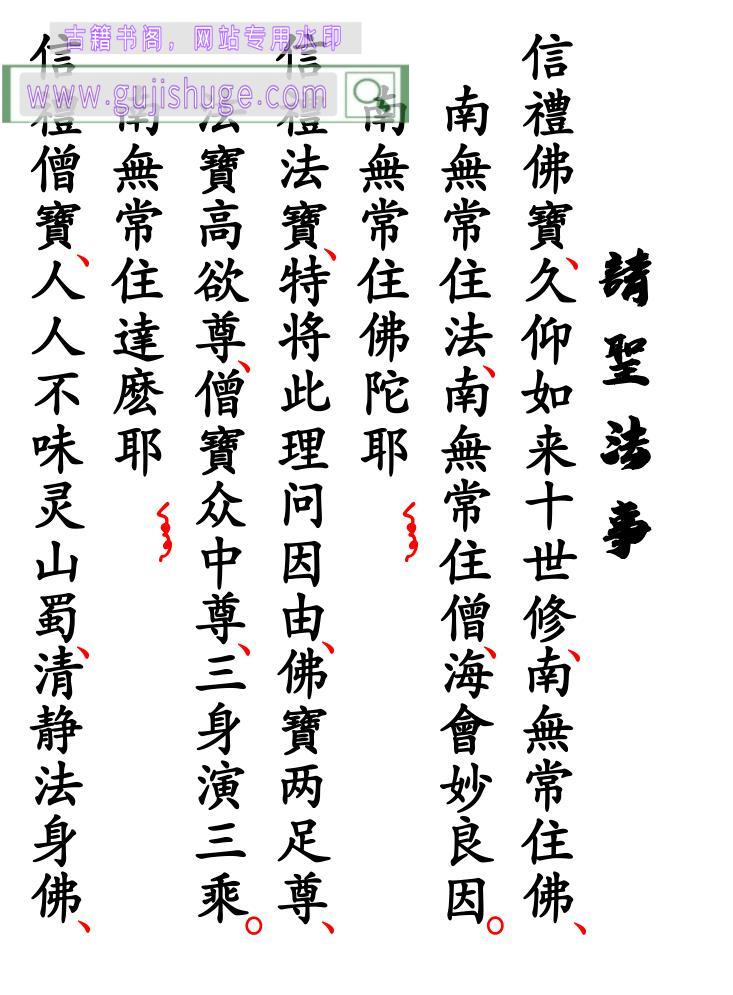 請聖法事
信禮佛寶、久仰如来十世修、南無常住佛、
南無常住法、南無常住僧、海會妙良因。
南無常住佛陀耶
信禮法寶、特将此理问因由、佛寶两足尊、
法寶高欲尊、僧寶众中尊、三身演三乘。
南無常住達麽耶
信禮僧寶、人人不味灵山蜀、清静法身佛、
古籍书阁，网站专用水印
www.gujishuge.com